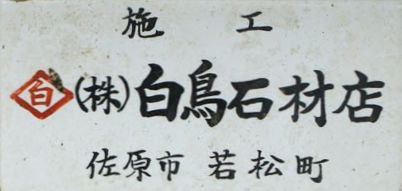 施工
白(株)白鳥石材店
佐原市 若松町